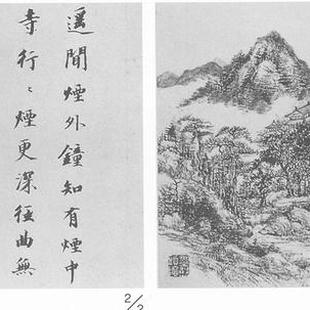 遥聞煙外鐘知有煙中
寺行〻煙更深徑曲無
2/2